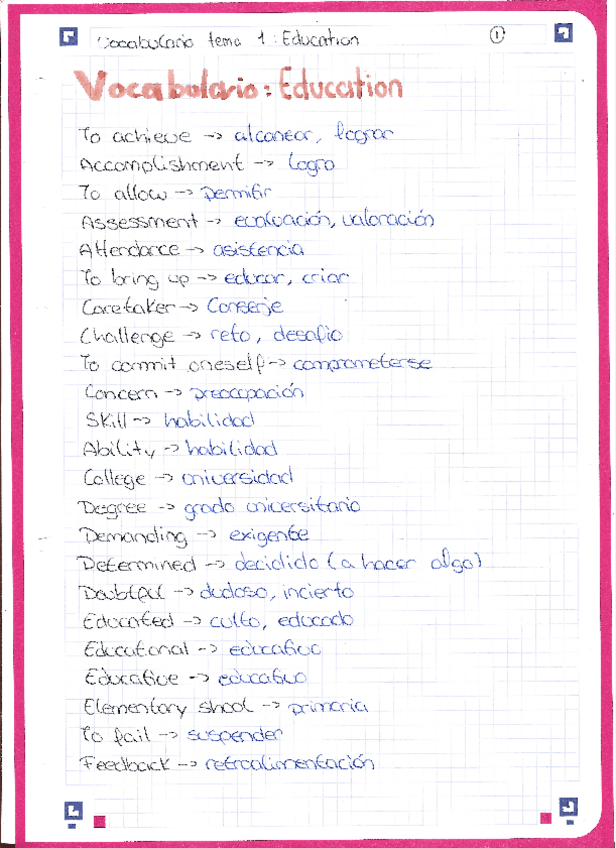 Vocabulario tema 1: Education 1
Vocabulario: Education
To achieve -> alcanzar, lograr
Accomplishment -> logro
To allow -> permitir
Assessment -> evaluación, valoración
Attendance -> asistencia
To bring up -> educar, criar
Caretaker -> Conserje
Challenge -> reto, desafio
To commit oneself -> comprometerse
Concern -> preocupación
Skill -> habilidad
Ability -> habilidad
College -> universidad
Degree -> grado universitario
Demanding -> exigente
Determined -> decidido (a hacer algo)
Doubtful -> dudoso, incierto
Educated -> culto, educado
Educational -> educativo
Educative -> educativo
Elementary shool -> primaria
To fail -> suspender
Feedback -> retroalimentación